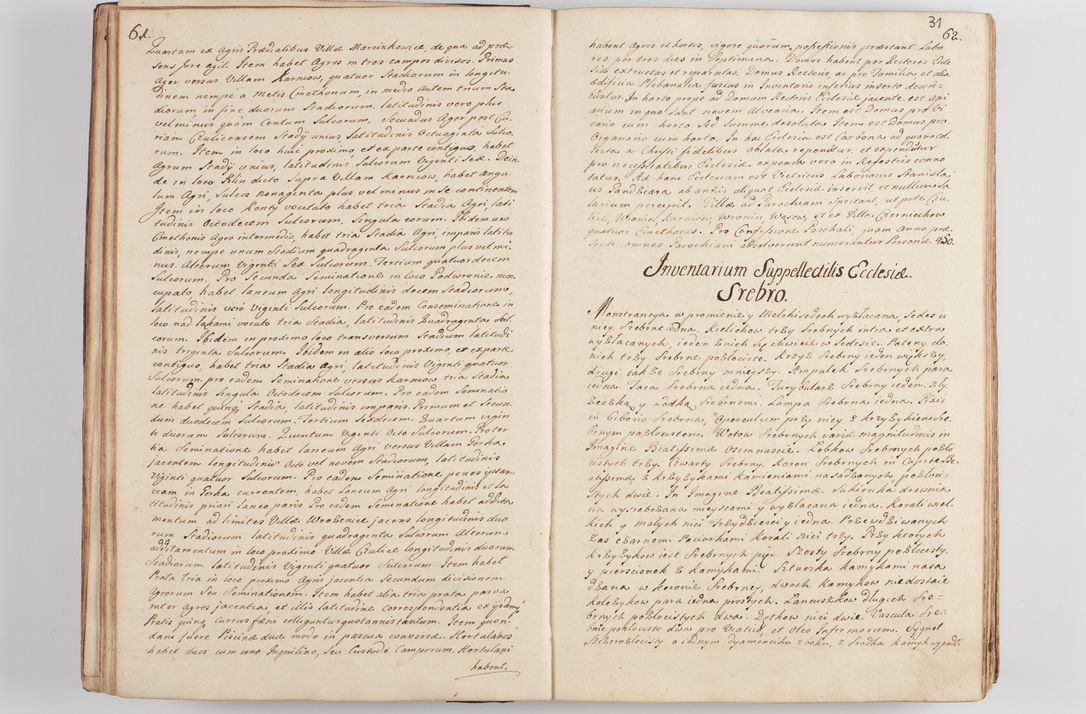 61.
Quartam ex Agris Prædialibus Villæ Marcinkowice, de qua ad præ
sens jure agit. Item habet Agros in tres campos divisos. Primus
Ager versus Villam Karniow, quatuor Stadiorum in longitu
dinem nempe a Metis Cmethonum, in medio autem trium Sta
diorum, in fine duorum Stadiorum, latitudinis vero plus
vel minus quam Centum Sulcorum. Secundus Ager post Cu
riam Czulicensem Stadij unius latitudinis Octuaginta Sulco
rum. Item in loco huic proximo et ex parte contiguo, habet
Agrum Stadij unius, latitudinis Sulcorum Viginti Sex. Dein
de in loco Klin dicto Supra Villam Karniow, habet angu
lum Agri, Sulcos nonaginta plus vel minus in se continentem
Item in loco Konty vocitato habet tria Stadia Agri, lati
tudinis Octodecem Sulcorum, Singula eorum. Ibidem uno
Cmethonis Agro intermedio, habet tria Stadia Agri, imparis latitu
dinis, nempe unum Stadium quadraginta Sulcorum plus vel mi
nus. Alterum Viginti Sex Sulcorum. Tertium quatuordecem
Sulcorum. Pro Secunda Seminatione in loco Podwronie nun
cupato habet laneum Agri longitudinis decem Stadiorum,
latitudinis vero Viginti Sulcorum. Pro eadem Conseminatione in
loco nad Łąkami vocato tria Stadia, latitudinis Quadraginta Sul
corum. Ibidem in proximo loco transversum Stadium latitudi
nis triginta Sulcorum. Ibidem in alio loco proximo, et ex parte
contiguo, habet tria Stadia Agri, latitudinis Viginti quatuor
Sulcorum, pro eadem Seminatione versus Karniow tria Stadia
latitudinis Singula Octodecem Sulcorum. Pro eadem Seminatio
ne habet quinq Stadia, latitudinis imparis. Primum et Secun
dum duodecem Sulcorum. Tertium Sexdecim. Quartum vigin
ti duorum Sulcorum. Quintum Viginti Octo Sulcorum. Pro ter
tia Seminatione habet laneum Agri versus Villam Gorka
jacentem longitudinis Octo vel novem Stadiorum, latitudinis
Viginti quatuor Sulcorum. Pro eadem Seminatione, penes ipsam
viam in Gorka currentem, habet laneum Agri longitudinis et la
titudinis priori laneo paris. Pro eadem Seminatione habet addita
mentum ad limites Villæ Wrozenice jacens longitudinis duo
rum Stadiorum latitudinis quadraginta Sulcorum. Alterum
additamentum in loco proximo Villæ Czulice longitudinis duorum
Stadiorum latitudinis Viginti quatuor Sulcorum. Item habet
Prata tria in loco proximo Agris jacentia Secundum divisionem
Agrorum Seu Seminationem. Item habet alia tria prata parva
inter agros jacentia, et illis latitudine correspondentia ex quibus
Pratis quinq currus fæni colliguntur quotannis tantum. Item quon
dam fuere Piscinæ duæ modo in pascua conversæ. Hortulanos
habet duos cum uno Inquilino, Seu Custode Camporum. Hortulani
habent.
31
62.
habent Agros et hortos, vigore quorum, possessionis præstant labo
res per tres dies in Septimana. Domos habent per Rectores Eccle
siæ extructas et reparatas. Domus Rectoris ac pro Familia et alia
ædificia Plebanalia, fusius in Inventario inferius inserto descri
buntur. In horto prope ad Domum Rectoris Ecclesiæ jacente est Api
arium in quo Sunt novem Alvearia. Item est Domus pro Vi
cario cum horto Sed Summe desolata. Item est Domus pro
Organario cum horto. In hac Ecclesia est Carbona ad quam col
lecta a Christi fidelibus Oblata reponitur, et expenditur
pro necessitatibus Ecclesiæ expensa vero in Regestris conno
tatur. Ad hanc Ecclesiam est Clericus Laboriosus Stanisla,
us Pandzicara ab annis aliquot Ecclesiæ inservit, et nullum Sa
larium percepit. Villæ ad Parochiam Spectant, ut pote Czu
lice, Woniec, Karniow, Wronin, Węzow, et ex Villa Czerniechow
quatuor Cmethones. Pro Confessione Paschali, quam anno præ
senti omnes Parochiani absolverunt numerantur Personæ 450.
Inventarium Suppellectilis Ecclesiæ.
Srebro.
Monstrancya w promienie y Melchisedech wyzłacana, Sedes u
niey Srebrne iedna. Kielichow trzy Srebnych intra et extra
wyzłacanych, ieden z nich Się chwieie w Sedesie. Pateny do
nich trzy Srebrne pozłociste. Krzyż Srebrny ieden większy,
drugi także Srebrny mnieyszy. Ampułek Srebrnych para
iedna. Taca Srebrna iedna. Turybularz Srebrny ieden, zły
żeczką y Łodką Srebrnemi. Lampa Srebrna iedna. Pixis
in Ciborio Srebrna, Operculum przy niey z krzyżykiem Sre
brnym pozłocistem. Wotow Srebrnych variæ magnitudinis in
Imagine Beatissimæ Osimnascie. Ząbkow Srebrnych pozło
cistych trzy. Czwarty Srebrny. Koron Srebrnych in Capite Be
atissimæ z krzyżykami kamieniami nasadzanych, pozłoci
stych dwie. In Imagine Beatissimæ Sukienka drewnia
na wysrebrzana mieyscami y wyzłacana iedna. Korali wiel
kich y małych nici trzydziesci y iedna. Przewdziwanych
zas czarnemi Paciorkami korali nici trzy. Przy ktorych
krzyżykow iest Srebrnych pięć. Szosty Srebrny pozłocisty.
y pierscionek z kamykami. Sztuczka kamykami nasa
dzana w koronie Srebrney, dwoch kamykow niedostaie
kolczykow para iedna prostych. Łancuszkow długich Sre,
brnych pozłocistych dwa. Dętkow nici dwie. Vascula Sre,
brne pozłociste dwa pro Viatico, et Oleo Infirmorum. Sygnet
Szczerozłoty o iednym dyamenciku z boku, z Srodka kamyk wypadł.